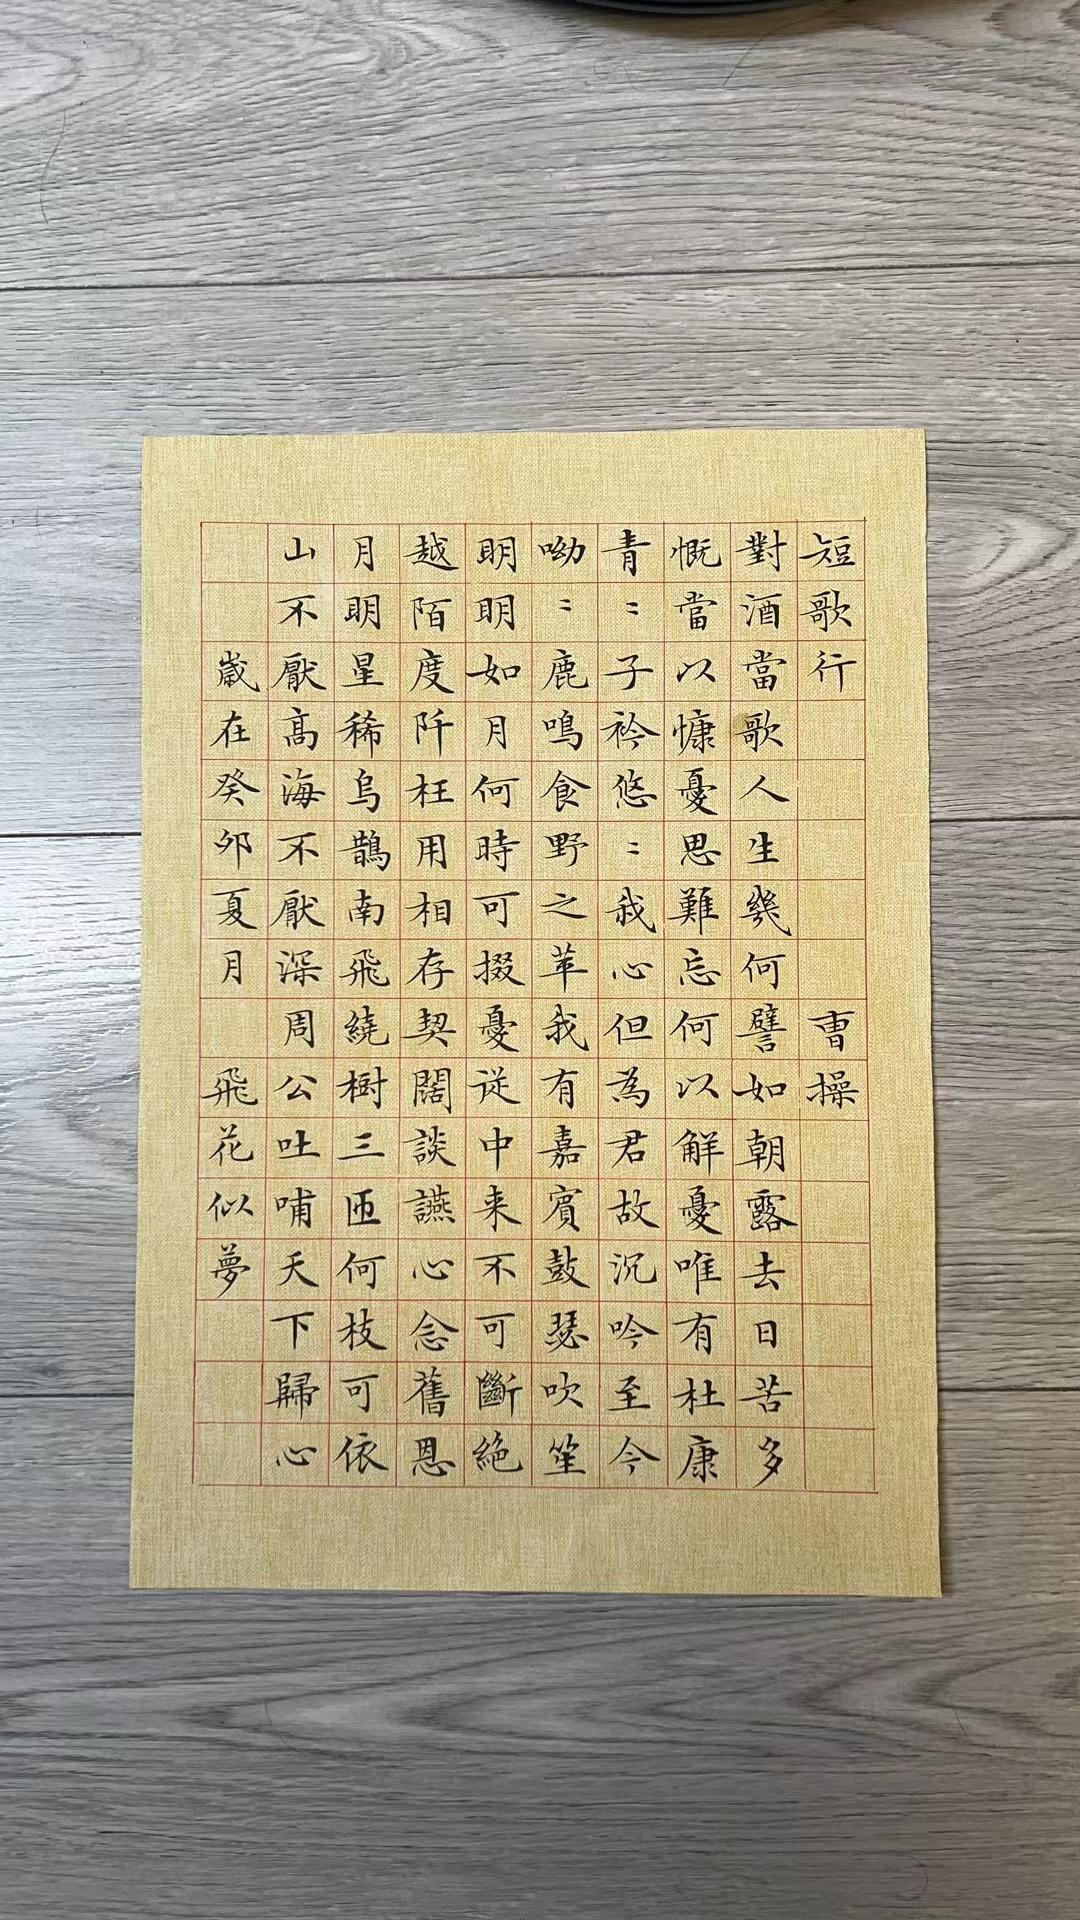 短歌行 曹操
對酒當歌人生幾何譬如朝露去日苦多
慨當以慷憂思難忘何以解憂唯有杜康
青〻子衿悠〻我心但為君故沉吟至今
呦〻鹿鳴食野之苹我有嘉賓鼓瑟吹笙
明明如月何時可掇憂從中来不可斷絕
越陌度阡枉用相存契闊談讌心念舊恩
月明星稀烏鵲南飛繞樹三匝何枝可依
山不厭高海不厭深周公吐哺天下歸心
歲在癸卯夏月 飛花似夢